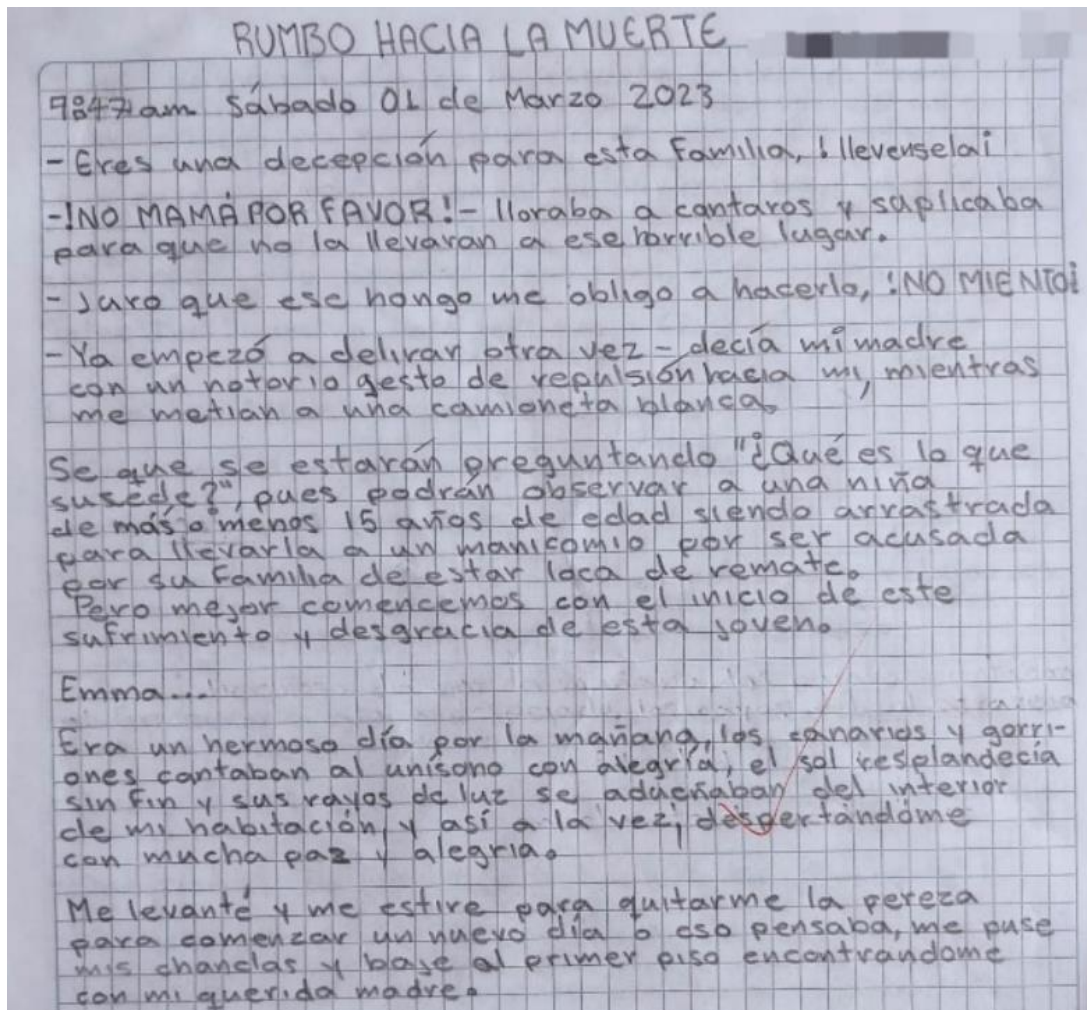 RUMBO HACIA LA MUERTE
9:47am Sábado 01 de Marzo 2023
- Eres una decepción para esta familia, ! llevensela¡
-!NO MAMÁ POR FAVOR!- lloraba a cantaros y suplicaba
para que no la llevaran a ese horrible lugar.
- Juro que ese hongo me obligo a hacerlo, !NO MIENTO¡
- Ya empezó a delirar otra vez - decía mi madre
con un notorio gesto de repulsión hacia mi, mientras
me metian a una camioneta blanca.
Se que se estarán preguntando "¿Qué es lo que
susede?", pues podrán observar a una niña
de más o menos 15 años de edad siendo arrastrada
para llevarla a un manicomio por ser acusada
por su familia de estar loca de remate.
Pero mejor comencemos con el inicio de este
sufrimiento y desgracia de esta joven.
Emma...
Era un hermoso día por la mañana, los canarios y gorri-
ones cantaban al unísono con alegría, el sol resplandecía
sin fin y sus rayos de luz se adueñaban del interior
de mi habitación, y así a la vez, despertándome
con mucha paz y alegria.
Me levanté y me estire para quitarme la pereza
para comenzar un nuevo día o eso pensaba, me puse
mis chanclas y baje al primer piso encontrandome
con mi querida madre.